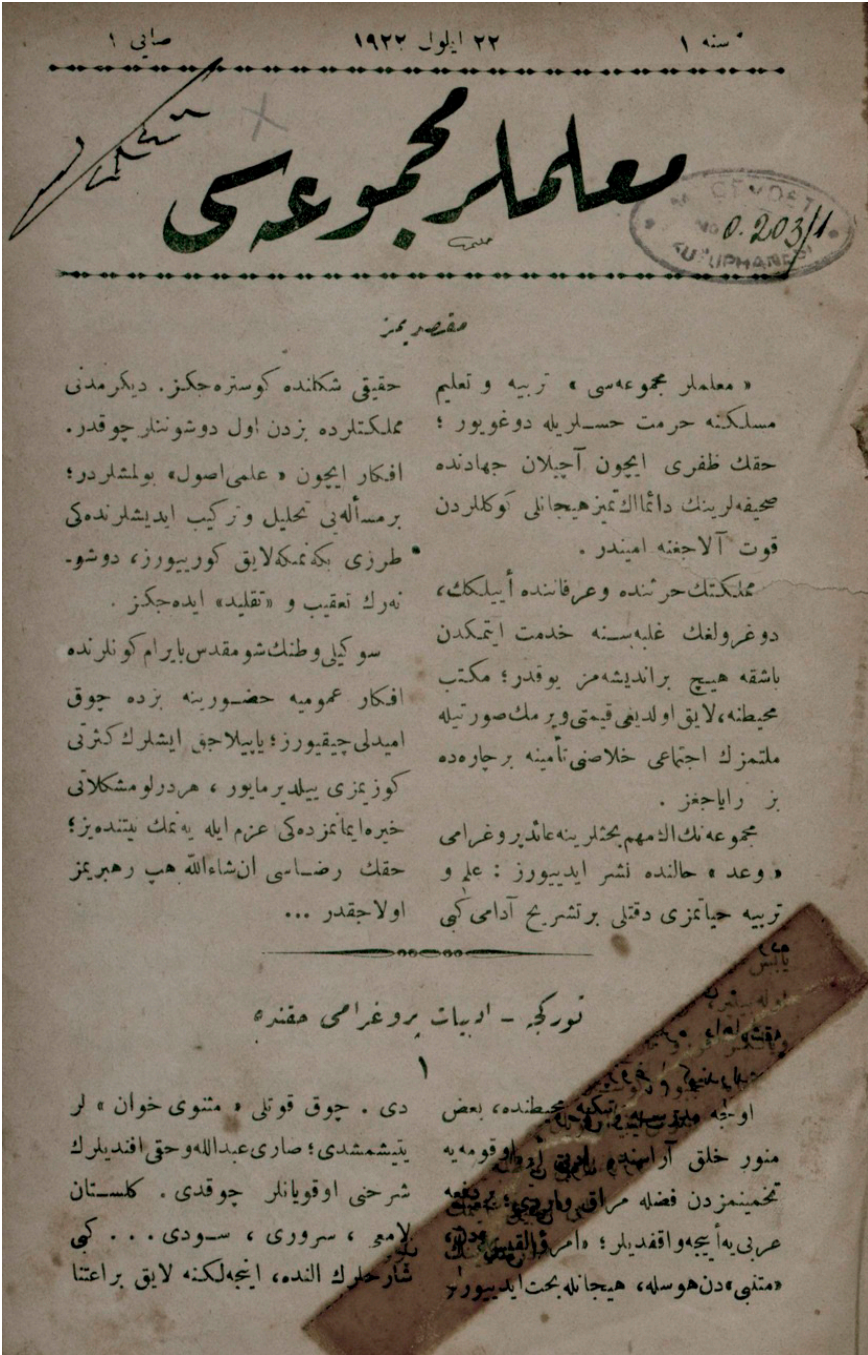 سنه ١
٢٢ ايلول ١٩٢٢
صايى ١
معلملر مجموعه‌سى
0.203/1
KÜTÜPHANESİ
مقصديمز
« معلملر مجموعه‌سى » تربيه و تعليم
مسلكنه حرمت حسلريله دوغويور ؛
حقك ظفرى ايچون آچيلان جهادنده
صحيفه‌لرينك دائما اك تميز هيجانلى كوكللردن
قوت آلاجغنه اميندر .
مملكتك حرثنده و عرفاننده أييلكك،
دوغرولغك غلبه‌سنه خدمت ايتمكدن
باشقه هيچ بر انديشه‌مز يوقدر؛ مكتب
محيطنه، لايق اولديغى قيمتى ويرمك صورتيله
ملتمزك اجتماعى خلاصنى تأمينه بر چاره‌ده
بز آراياجغز .
مجموعه‌نك اك مهم بحثلرينه عائد پروغرامى
« وعد » حالنده نشر ايدييورز : علم و
تربيه حياتمزى دقتلى بر تشريح آدامى كبى
حقيقى شكلنده كوستره‌جكز . ديكر مدنى
مملكتلرده بزدن اول دوشوننلر چوقدر.
افكار ايچون « علمى اصول» بولمشلردر؛
بر مسأله‌يى تحليل و تركيب ايديشلرنده‌كى
طرزى بكه‌نمكه لايق كورييورز، دوشو-
نه‌رك تعقيب و «تقليد» ايده‌جكز .
سوكيلى وطنك شو مقدس بايرام كونلرنده
افكار عموميه حضورينه بزده چوق
اميدلى چيقيورز؛ ياپيلاجق ايشلرك كثرتى
كوزيمزى ييلديرمايور ، هر درلو مشكلاتى
خيره ايمانمزده‌كى عزم ايله يه‌نمك نيتنده‌يز؛
حقك رضاسى ان‌شاءالله هپ رهبريمز
اولاجقدر ...
توركجه – ادبيات پروغرامى حقنده
١
اولجه مدرسه و تكيه محيطنده، بعض
منور خلق آراسنده اوقومه‌يه
تخمينمزدن فضله مراق واردى؛
عربى‌يه أييجه واقفديلر؛ «امرؤ القيس» دن،
«متنبى» دن هوسله، هيجانله بحث ايدييور
دى . چوق قوتلى « مثنوى خوان » لر
يتيشمشدى؛ صارى عبدالله و حقى افنديلرك
شرحنى اوقويانلر چوقدى . كلستان
لامعى ، سرورى ، سودى . . . كبى
شارحلرك النده، اينجه‌لكنه لايق بر اعتنا